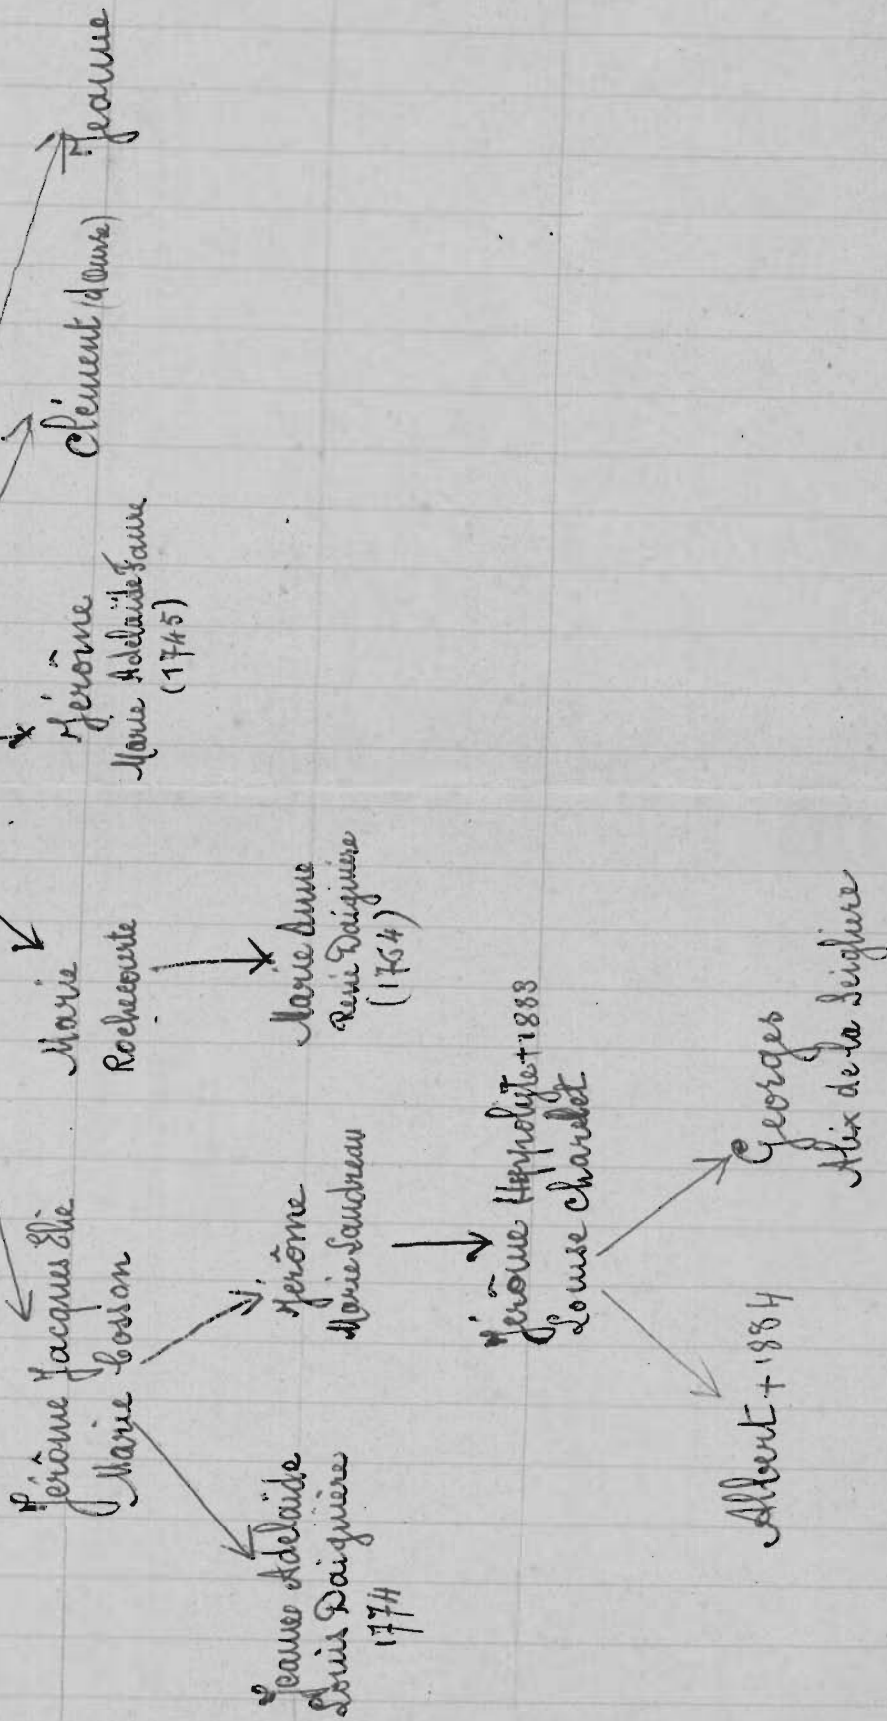 Jérôme Jacques Elie
Marie Cosson
Marie
Rochecourte
Jérôme
Marie Adelaïde Faure
(1745)
Clément
Jeanne
Jeanne Adelaïde
Louis Daiguière
1774
Jérôme
Marie Landreau
Marie Anne
René Daiguière
(1764)
Jérôme Hyppolyte + 1883
Louise Chardet
Albert + 1884
Georges
Alix de la Seigliere